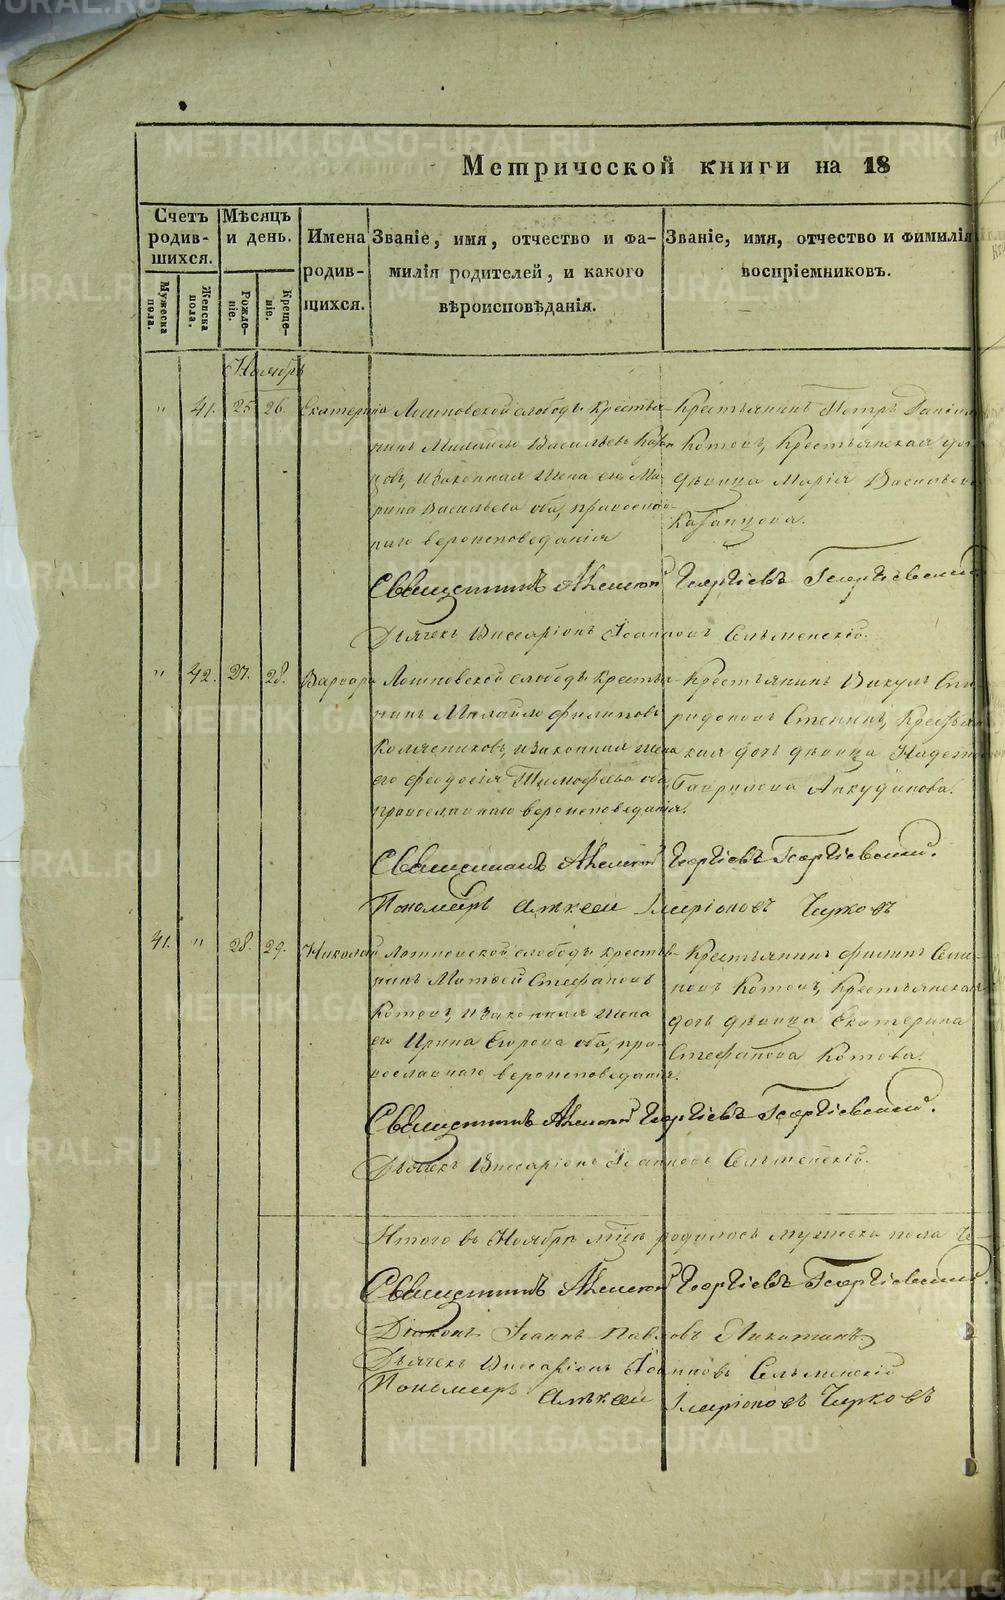 Метрической книги на 18
Счетъ родив-шихся.
Мѣсяцъ и день.
Имена родив-шихся.
Званіе, имя, отчество и фа-милія родителей, и какого вѣроисповѣданія.
Званіе, имя, отчество и фимилія воспріемниковъ.
Мужеска пола.
Женска пола.
Рожде-ніе.
Креще-ніе.
Ноябрь
" 41. 25 26. Екатерина
слободы крестья-
нинъ Михайло Васильевъ Казан
цовъ, и законная жена его Ма-
рина Васильева оба, православ-
наго вероисповедания
Крестьянинъ Петръ
Котовъ, Крестьянская
дѣвица Марія Васильева
Казанцова.
Священникъ Алексей Георгіевъ Георгіевский.
Дьячекъ Виссаріонъ Іоанновъ Сельменскій.
" 42. 27. 28. Варвара
слободы крестья-
нинъ Михайло Филиповъ
и законная жена
его Феодосія Тимофеева оба
православнаго вероисповеданія.
Крестьянинъ Викулъ Спи
ридоновъ Стенинъ, Крестьян
кая дочь дѣвица Надежда
Гаврилова Анкудинова.
Священникъ Алексей Георгіевъ Георгіевский.
Пономарь Алексей Иларіоновъ Чирковъ
41. " 28. 29. Николай
слободы крестья-
нинъ Матвей Стефановъ
Котовъ, и законная жена
его Ирина Егорова оба, пра-
вославнаго вероисповеданія.
Крестьянинъ Филипъ Семе-
новъ Котовъ, Крестьянская
дочь дѣвица Екатерина
Стефанова Котова.
Священникъ Алексей Георгіевъ Георгіевский.
Дьячекъ Виссаріонъ Іоанновъ Сельменскій.
Итого въ Ноябрѣ мцѣ родилось мужеска пола
Священникъ Алексей Георгіевъ Георгіевский.
Діаконъ Іоаннъ Павловъ
Дьячекъ Виссаріонъ Іоанновъ Сельменскій
Пономарь Алексей Иларіоновъ Чирковъ
METRIKI.GASO-URAL.RU